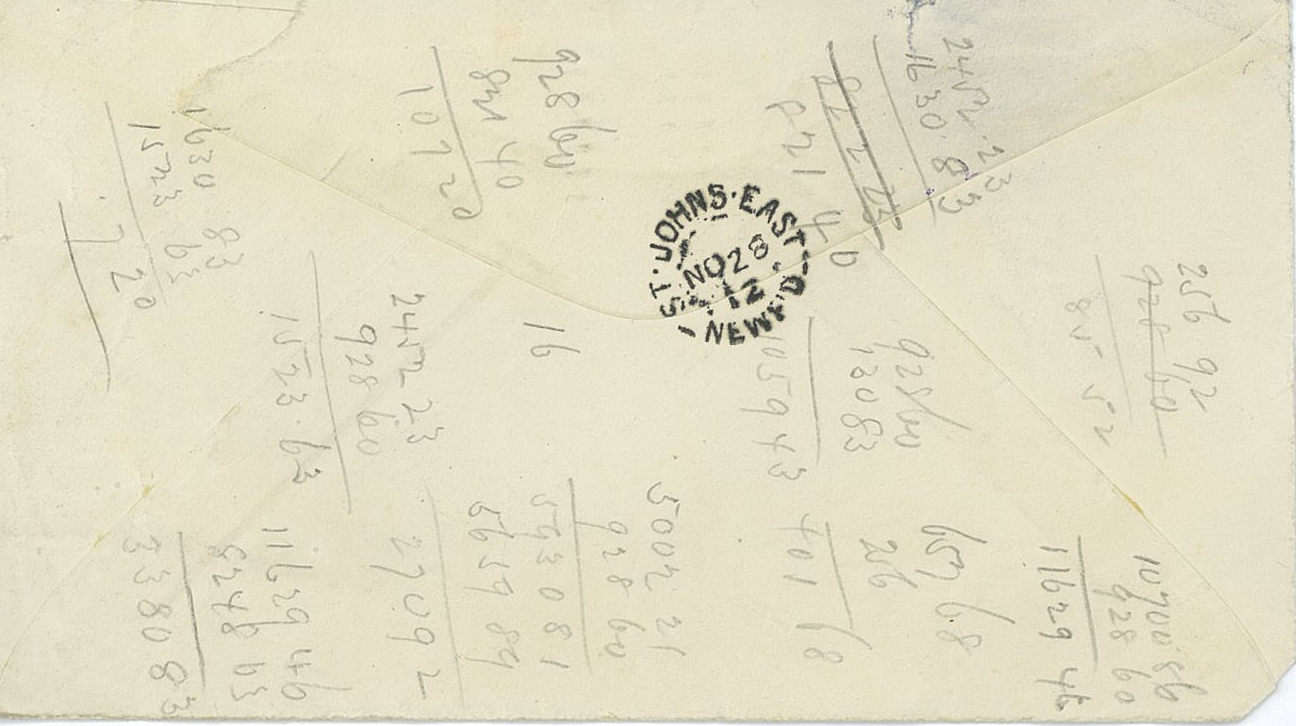 2452.23
1630.83
821 40
928 60
821 40
107 20
1630 83
1523 63
7 20
ST. JOHNS. EAST
NO 28
12
NEWF'D
256 92
928 60
85 52
928/60
130 83
1059 43
16
2452 23
928 60
1523.63
10700 86
928 60
11629 46
657 68
256
401 68
5002 21
928 60
5930 81
5659 89
270 92
11629 46
8248 63
3380 83